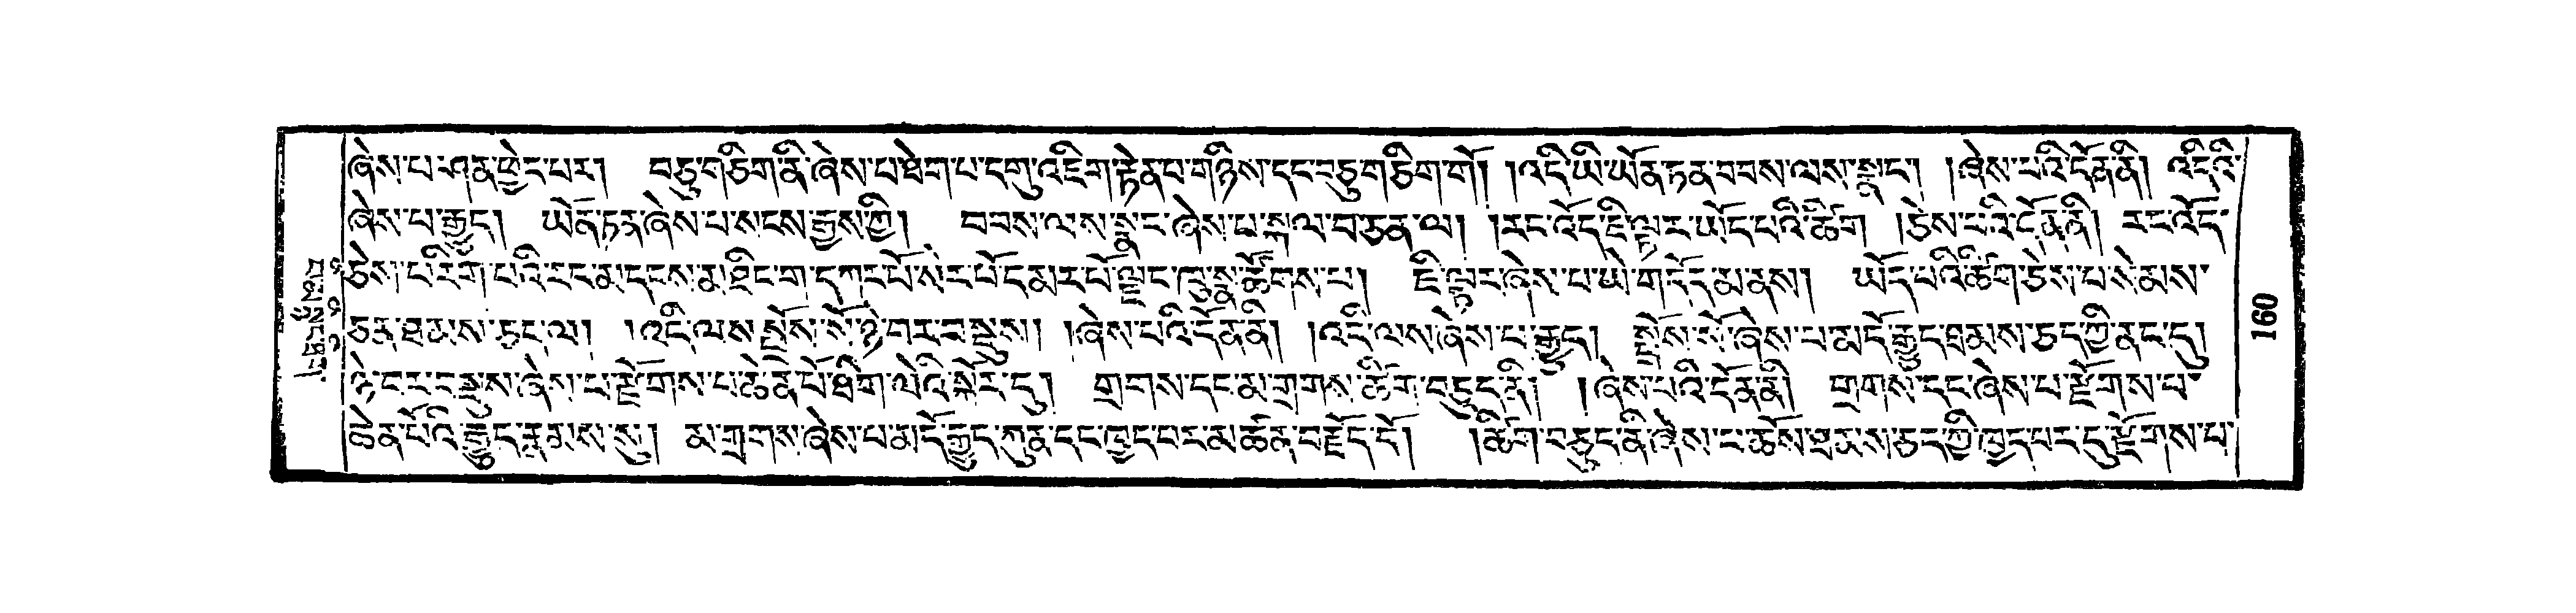 ཞེས་པ་ཤན་ཁྱེད་པར། བཅུ་གཅིག་ནི་ཞེས་པ་ཐེག་པ་དགུ་འཇིག་རྟེན་པ་གཉིས་དང་བཅུ་གཅིག་གོ། །འདི་ཡི་ཡོན་ཏན་བབས་ལས་སྣང་། །ཞེས་པའི་དོན་ནི། འདིའི་
ཞེས་པ་རྒྱུད། ཡོན་ཏན་ཞེས་པ་སངས་རྒྱས་ཀྱི། བབས་ལས་སྣང་ཞེས་པ་སྐལ་བ་ཅན་ལ། །རང་འོད་ཇི་ལྟར་ཡོད་པའི་ཚིག །ཅེས་པའི་དོན་ནི། རང་འོད་
ཅེས་པ་རིག་པའི་རང་མདངས་མཐིང་ག་དཀར་པོ་སེར་པོ་དམར་པོ་ལྗང་ཁུ་སྣ་ཚོགས་པ། ཇི་ལྟར་ཞེས་པ་ཡེ་གདོད་མ་ནས། ཡོད་པའི་ཚིག་ཅེས་པ་སེམས་
ཅན་ཐམས་ཅད་ལ། །འདི་ལས་སྤྲོས་སོ་ཉེ་བར་བསྡུས། །ཞེས་པའི་དོན་ནི། །འདི་ལས་ཞེས་པ་རྒྱུད། སྤྲོས་སོ་ཞེས་པ་མདོ་རྒྱུད་ཐམས་ཅད་ཀྱི་ནང་དུ།
ཉེ་བར་བསྡུས་ཞེས་པ་རྫོགས་པ་ཆེན་པོ་ཐིག་ལེའི་སྐོར་དུ། གྲགས་དང་མ་གྲགས་ཚིག་བཅུད་ནི། །ཞེས་པའི་དོན་ནི། གྲགས་དང་ཞེས་པ་རྫོགས་པ་
ཆེན་པོའི་རྒྱུད་རྣམས་སུ། མ་གྲགས་ཞེས་པ་མདོ་རྒྱུད་ཀུན་དང་ཁྱད་པར་མཚོན་བརྗོད་དོ། །ཚིག་བཅུད་ནི་ཞེས་པ་ཆོས་ཐམས་ཅད་ཀྱི་ཁྱད་པར་དུ་རྫོགས་པ་
160